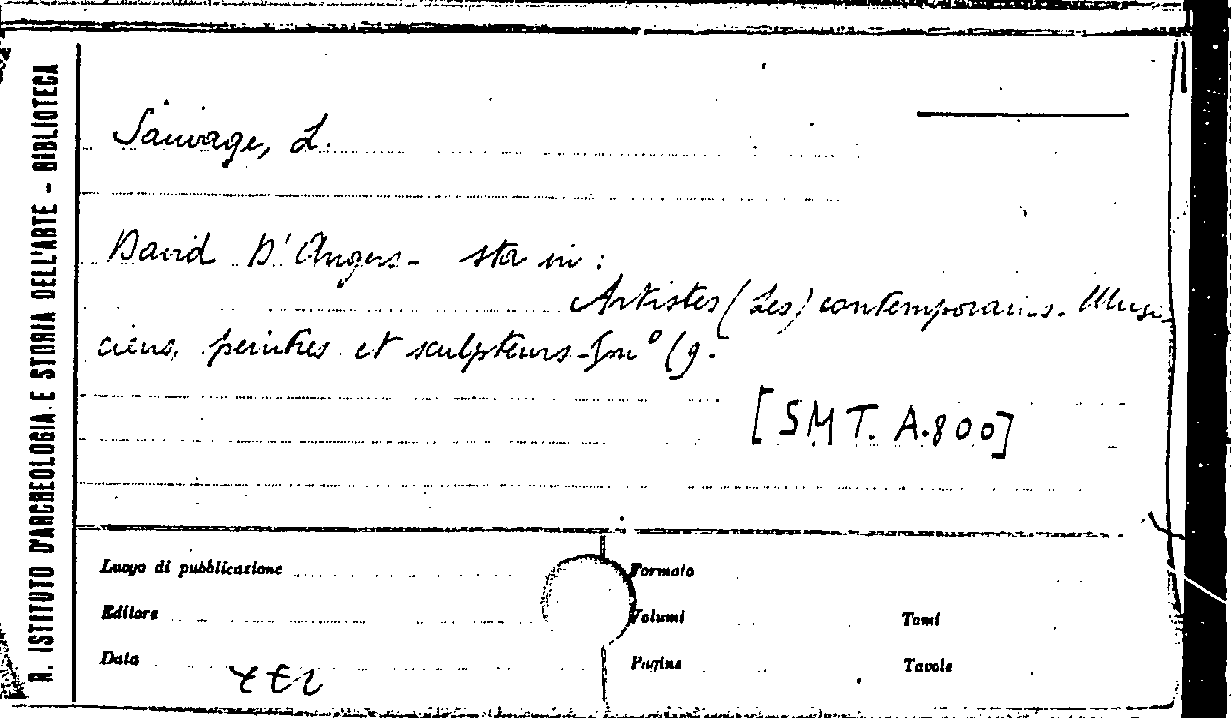 R. ISTITUTO D'ARCHEOLOGIA E STORIA DELL'ARTE - BIBLIOTECA
Sauvage, L.
David D'Angers - sta in:
Artistes (Les) contemporains. Musi-
ciens, peintres et sculpteurs - In° (9.
[SMT. A.800]
Luogo di pubblicazione
Formato
Editore
Volumi
Tomi
Data
Pagine
Tavole